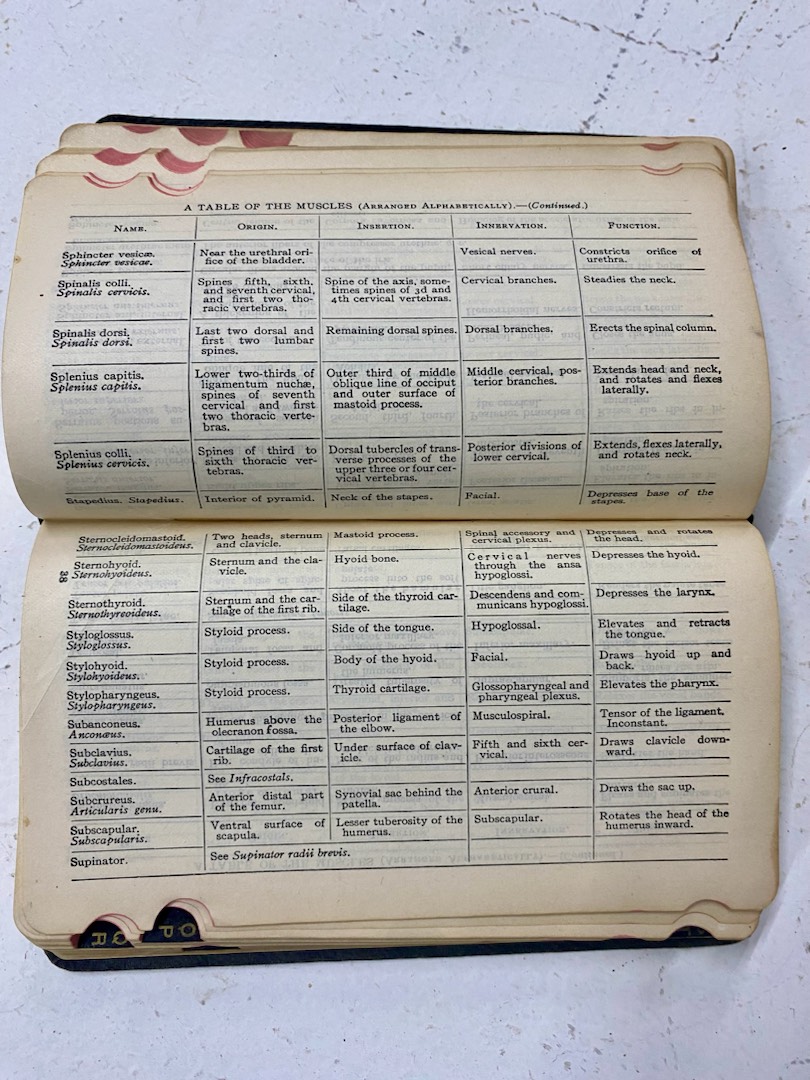 A TABLE OF THE MUSCLES (ARRANGED ALPHABETICALLY).—(Continued.)
NAME. ORIGIN. INSERTION. INNERVATION. FUNCTION.
Sphincter vesicæ.
Sphincter vesicae.
Near the urethral ori-
fice of the bladder.
Vesical nerves.
Constricts orifice of
urethra.
Spinalis colli.
Spinalis cervicis.
Spines fifth, sixth,
and seventh cervical,
and first two tho-
racic vertebras.
Spine of the axis, some-
times spines of 3d and
4th cervical vertebras.
Cervical branches.
Steadies the neck.
Spinalis dorsi.
Spinalis dorsi.
Last two dorsal and
first two lumbar
spines.
Remaining dorsal spines.
Dorsal branches.
Erects the spinal column.
Splenius capitis.
Splenius capitis.
Lower two-thirds of
ligamentum nuchæ,
spines of seventh
cervical and first
two thoracic verte-
bras.
Outer third of middle
oblique line of occiput
and outer surface of
mastoid process.
Middle cervical, pos-
terior branches.
Extends head and neck,
and rotates and flexes
laterally.
Splenius colli.
Splenius cervicis.
Spines of third to
sixth thoracic ver-
tebras.
Dorsal tubercles of trans-
verse processes of the
upper three or four cer-
vical vertebras.
Posterior divisions of
lower cervical.
Extends, flexes laterally,
and rotates neck.
Stapedius. Stapedius.
Interior of pyramid.
Neck of the stapes.
Facial.
Depresses base of the
stapes.
Sternocleidomastoid.
Sternocleidomastoideus.
Two heads, sternum
and clavicle.
Mastoid process.
Spinal accessory and
cervical plexus.
Depresses and rotates
the head.
38
Sternohyoid.
Sternohyoideus.
Sternum and the cla-
vicle.
Hyoid bone.
Cervical nerves
through the ansa
hypoglossi.
Depresses the hyoid.
Sternothyroid.
Sternothyreoideus.
Sternum and the car-
tilage of the first rib.
Side of the thyroid car-
tilage.
Descendens and com-
municans hypoglossi.
Depresses the larynx.
Styloglossus.
Styloglossus.
Styloid process.
Side of the tongue.
Hypoglossal.
Elevates and retracts
the tongue.
Stylohyoid.
Stylohyoideus.
Styloid process.
Body of the hyoid.
Facial.
Draws hyoid up and
back.
Stylopharyngeus.
Stylopharyngeus.
Styloid process.
Thyroid cartilage.
Glossopharyngeal and
pharyngeal plexus.
Elevates the pharynx.
Subanconeus.
Anconæus.
Humerus above the
olecranon fossa.
Posterior ligament of
the elbow.
Musculospiral.
Tensor of the ligament.
Inconstant.
Subclavius.
Subclavius.
Cartilage of the first
rib.
Under surface of clav-
icle.
Fifth and sixth cer-
vical.
Draws clavicle down-
ward.
Subcostales.
See Infracostals.
Subcrureus.
Articularis genu.
Anterior distal part
of the femur.
Synovial sac behind the
patella.
Anterior crural.
Draws the sac up.
Subscapular.
Subscapularis.
Ventral surface of
scapula.
Lesser tuberosity of the
humerus.
Subscapular.
Rotates the head of the
humerus inward.
Supinator.
See Supinator radii brevis.
Q R
O P